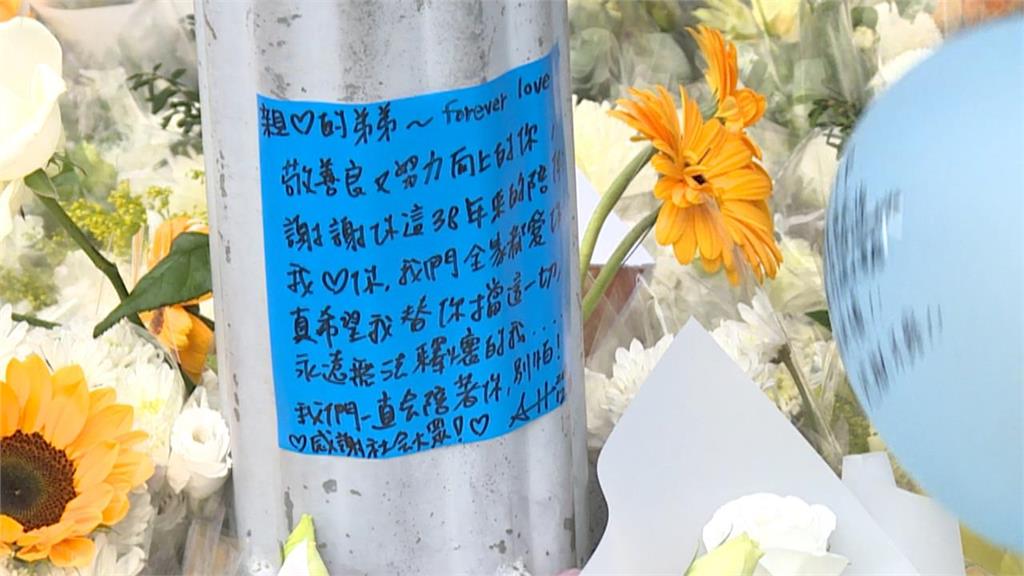 親♡的弟弟～forever love
敬善良又努力向上的你
謝謝你這38年來的陪伴
我♡你,我們全家都愛你
真希望我替你擋這一切,
永遠無法釋懷的我....
我們一直會陪著你,別怕!
♡感謝社会大眾!♡